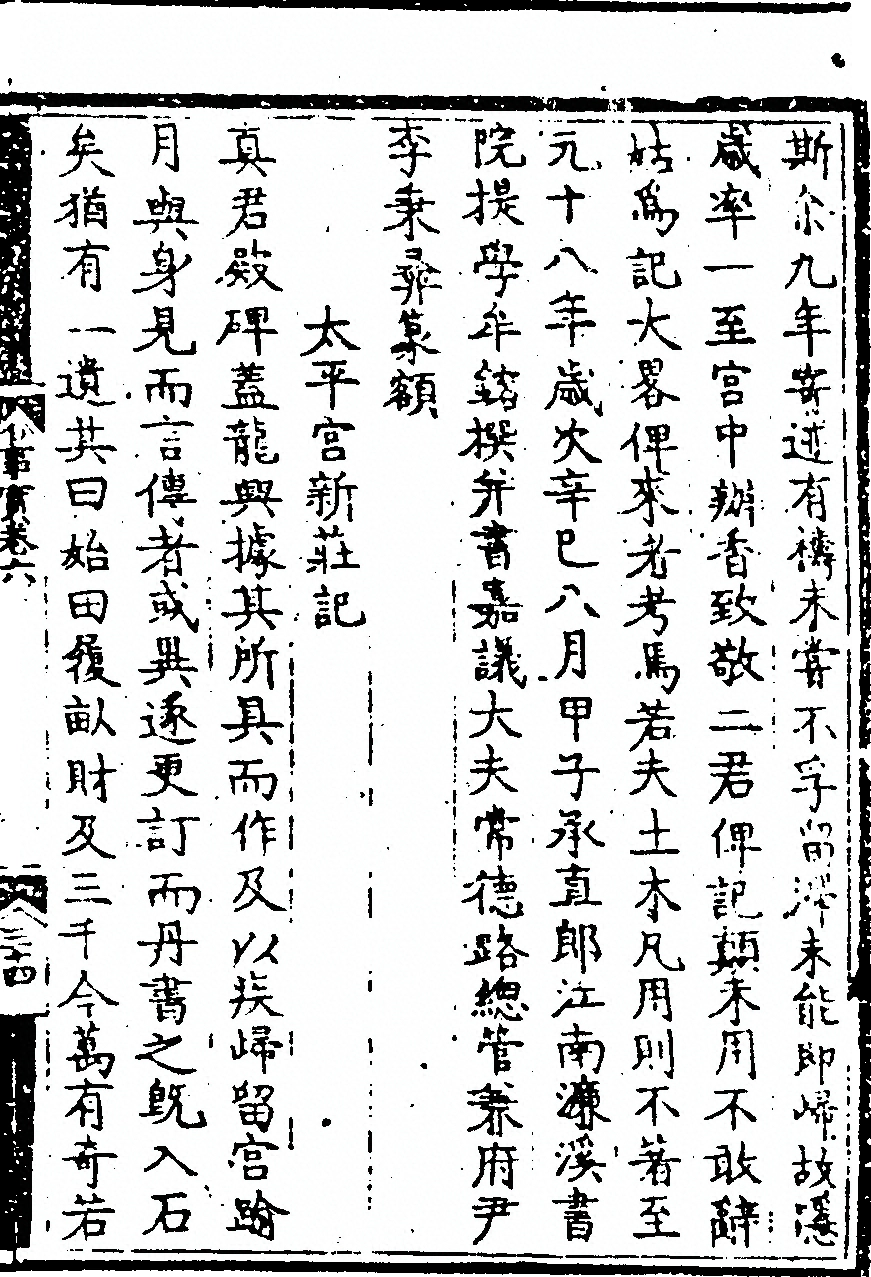 斯尒九年寄迹有禱未嘗不孚留滯未能即歸故漫
歲率一至宮中辦香致敬二君俾記顛末用不敢辭
姑爲記大畧俾來者考焉若夫土木凡用則不著至
元十八年歲次辛巳八月甲子承直郎江南濂溪書
院提學牟鐩撰并書嘉議大夫常德路總管兼府尹
李秉彛篆額
太平宮新莊記
真君殿碑蓋龍興據其所具而作及以疾歸留宮踰
月與身見而言傳者或異逐更訂而丹書之既入石
矣猶有一遺其曰始田履畝財及三千今萬有奇若
事實卷六
三十四